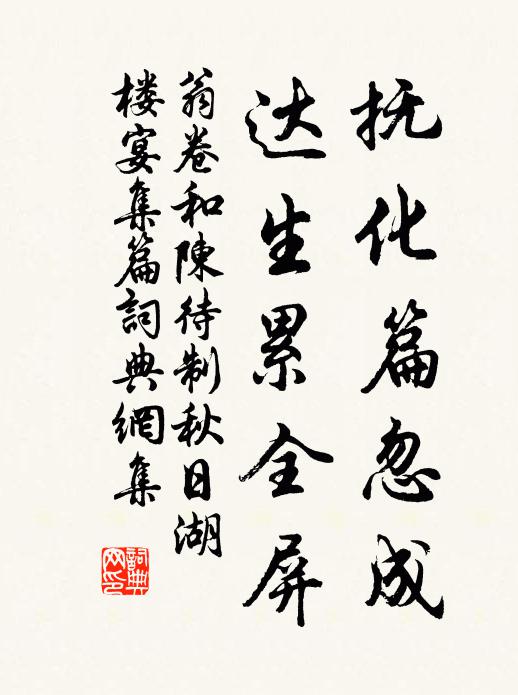 抚化篇忽成
达生累全屏
翁卷和陳待制秋日湖
楼宴集篇詞典網集
詞典网印